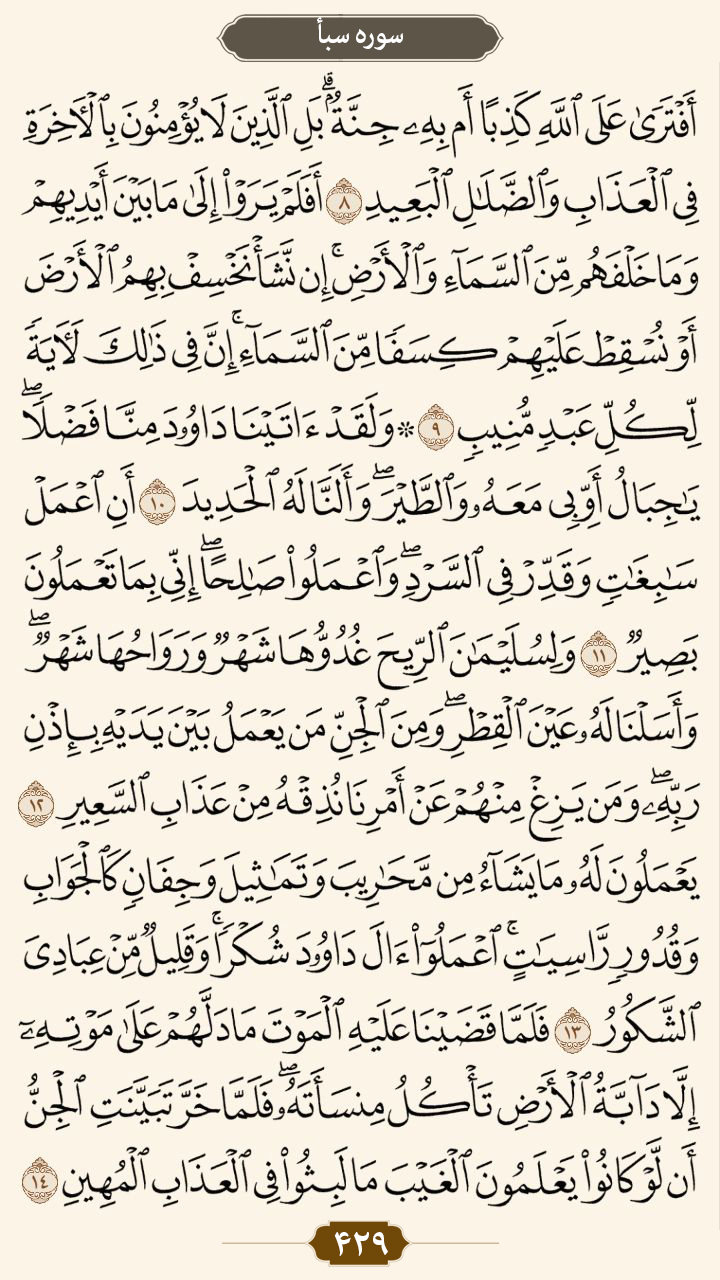 سوره سبأ
أَفْتَرَىٰ عَلَى ٱللَّهِ كَذِبًا أَم بِهِۦ جِنَّةُۢۗ بَلِ ٱلَّذِينَ لَا يُؤْمِنُونَ بِٱلْأَخِرَةِ
فِى ٱلْعَذَابِ وَٱلضَّلَٰلِ ٱلْبَعِيدِ ٨ أَفَلَمْ يَرَوْا۟ إِلَىٰ مَا بَيْنَ أَيْدِيهِمْ
وَمَا خَلْفَهُم مِّنَ ٱلسَّمَآءِ وَٱلْأَرْضِۚ إِن نَّشَأْ نَخْسِفْ بِهِمُ ٱلْأَرْضَ
أَوْ نُسْقِطْ عَلَيْهِمْ كِسَفًا مِّنَ ٱلسَّمَآءِۚ إِنَّ فِى ذَٰلِكَ لَأَيَةً
لِّكُلِّ عَبْدٍ مُّنِيبٍ ٩ ۞ وَلَقَدْ ءَاتَيْنَا دَاوُۥدَ مِنَّا فَضْلًاۖ
يَٰجِبَالُ أَوِّبِى مَعَهُۥ وَٱلطَّيْرَۖ وَأَلَنَّا لَهُ ٱلْحَدِيدَ ١٠ أَنِ ٱعْمَلْ
سَٰبِغَٰتٍ وَقَدِّرْ فِى ٱلسَّرْدِۖ وَٱعْمَلُوا۟ صَٰلِحًاۖ إِنِّى بِمَا تَعْمَلُونَ
بَصِيرٌ ١١ وَلِسُلَيْمَٰنَ ٱلرِّيحَ غُدُوُّهَا شَهْرٌ وَرَوَاحُهَا شَهْرٌۖ
وَأَسَلْنَا لَهُۥ عَيْنَ ٱلْقِطْرِۖ وَمِنَ ٱلْجِنِّ مَن يَعْمَلُ بَيْنَ يَدَيْهِ بِإِذْنِ
رَبِّهِۦۖ وَمَن يَزِغْ مِنْهُمْ عَنْ أَمْرِنَا نُذِقْهُ مِنْ عَذَابِ ٱلسَّعِيرِ ١٢
يَعْمَلُونَ لَهُۥ مَا يَشَآءُ مِن مَّحَٰرِيبَ وَتَمَٰثِيلَ وَجِفَانٍ كَٱلْجَوَابِ
وَقُدُورٍ رَّاسِيَٰتٍۚ ٱعْمَلُوٓا۟ ءَالَ دَاوُۥدَ شُكْرًاۚ وَقَلِيلٌ مِّنْ عِبَادِىَ
ٱلشَّكُورُ ١٣ فَلَمَّا قَضَيْنَا عَلَيْهِ ٱلْمَوْتَ مَا دَلَّهُمْ عَلَىٰ مَوْتِهِۦٓ
إِلَّا دَآبَّةُ ٱلْأَرْضِ تَأْكُلُ مِنسَأَتَهُۥۖ فَلَمَّا خَرَّ تَبَيَّنَتِ ٱلْجِنُّ
أَن لَّوْ كَانُوا۟ يَعْلَمُونَ ٱلْغَيْبَ مَا لَبِثُوا۟ فِى ٱلْعَذَابِ ٱلْمُهِينِ ١٤
۴۲۹